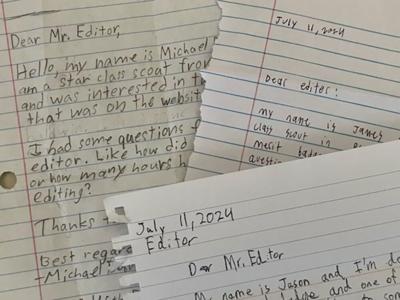 Dear Mr. Editor,
Hello, my name is Michael
am a star class scout from
and was interested in
that was on the website
I had some questions
editor. Like how did
or how many hours
editing?
Thanks
Best regard
-Michael
July 11, 2024
Dear editor:
my name is James
class scout in
merit
question
July 11, 2024
Editor
Dear Mr. Editor
My name is Jason and I'm
and one of